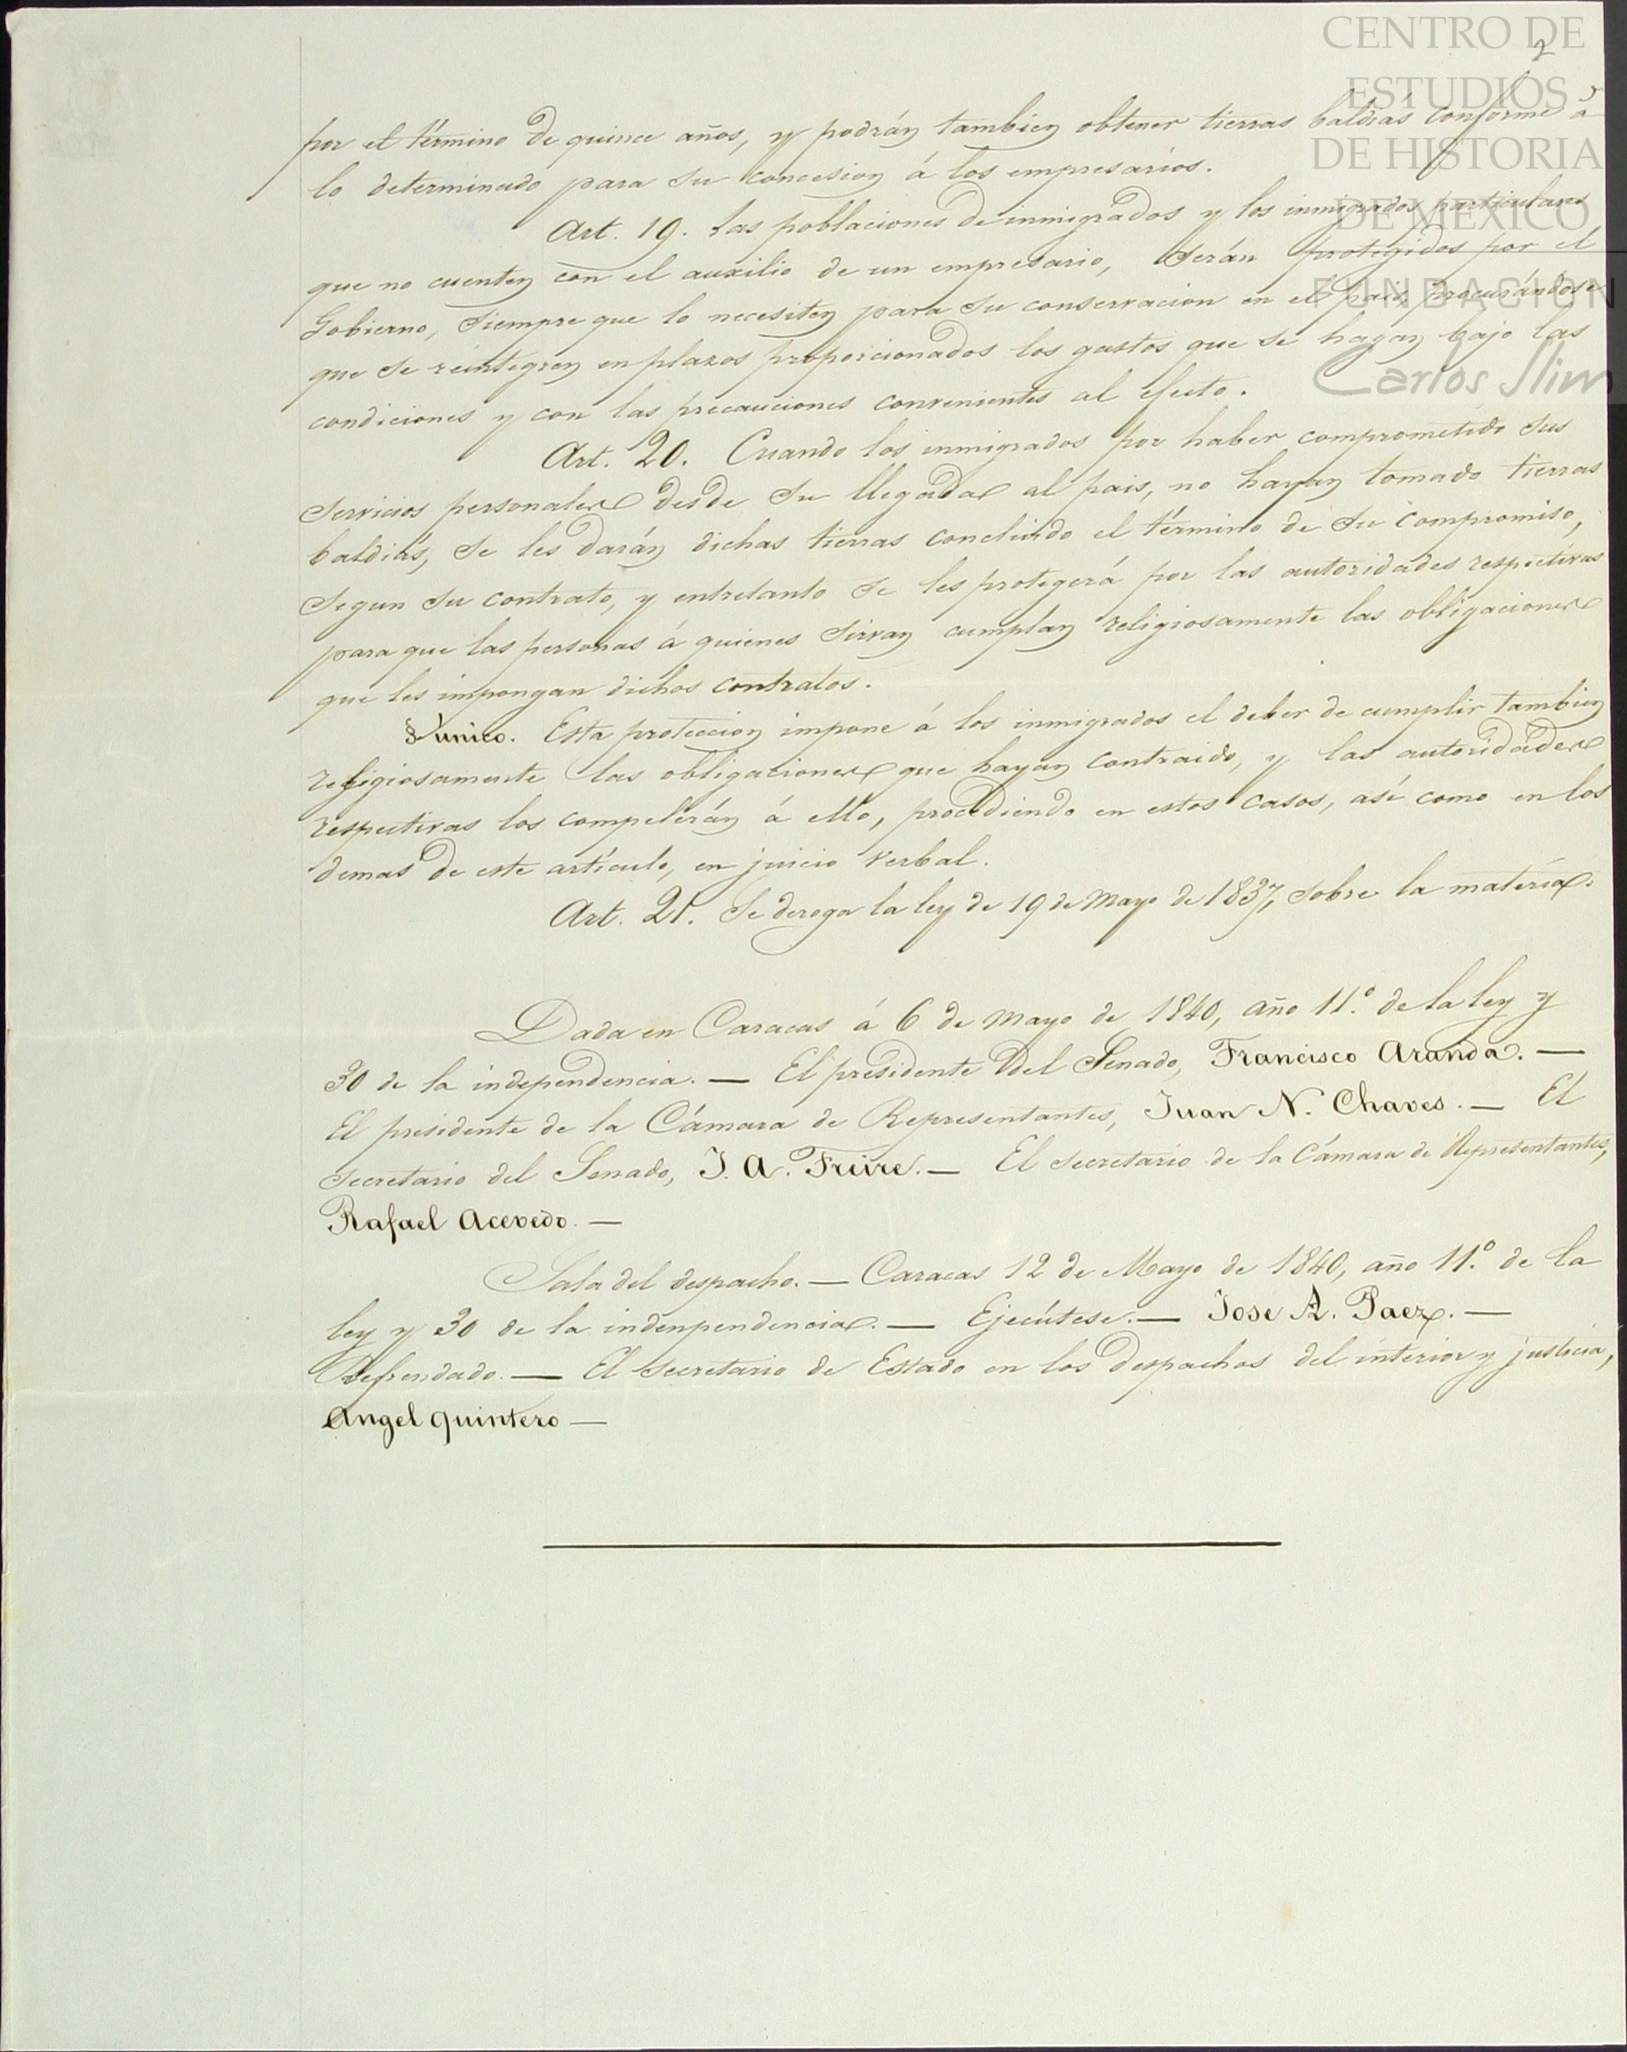 CENTRO DE
ESTUDIOS
DE HISTORIA
DE MEXICO
FUNDACION
Carlos Slim
2
por el término de quince años, y podrán tambien obtener tierras baldías conforme á
lo determinado para su concesion á los empresarios.
Art. 19. Las poblaciones de inmigrados y los inmigrados particulares
que no cuenten con el auxilio de un empresario, serán protegidos por el
Gobierno, siempre que lo necesiten para su conservacion en el pais, procurándose
que se reintegren en plazos proporcionados los gastos que se hagan bajo las
condiciones y con las precauciones convenientes al efecto.
Art. 20. Cuando los inmigrados por haber comprometido sus
servicios personales desde su llegada al pais, no hayan tomado tierras
baldías, se les darán dichas tierras concluido el término de su compromiso,
segun su contrato, y entretanto se les protegerá por las autoridades respectivas
para que las personas á quienes sirvan cumplan religiosamente las obligaciones
que les impongan dichos contratos.
§ único. Esta proteccion impone á los inmigrados el deber de cumplir tambien
religiosamente las obligaciones que hayan contraido, y las autoridades
respectivas los compelerán á ello, procediendo en estos casos, así como en los
demas de este artículo, en juicio verbal.
Art. 21. Se deroga la ley de 19 de Mayo de 1837, sobre la materia.
Dada en Caracas á 6 de Mayo de 1840, año 11.º de la ley y
30 de la independencia. — El presidente del Senado, Francisco Aranda. —
El presidente de la Cámara de Representantes, Juan N. Chaves. — El
secretario del Senado, J. A. Freire. — El secretario de la Cámara de Representantes,
Rafael Acevedo. —
Sala del despacho. — Caracas 12 de Mayo de 1840, año 11.º de la
ley y 30 de la indenpendencia. — Ejecútese. — Jose A. Paez. —
Refrendado. — El secretario de Estado en los despachos del interior y justicia,
Angel Quintero —